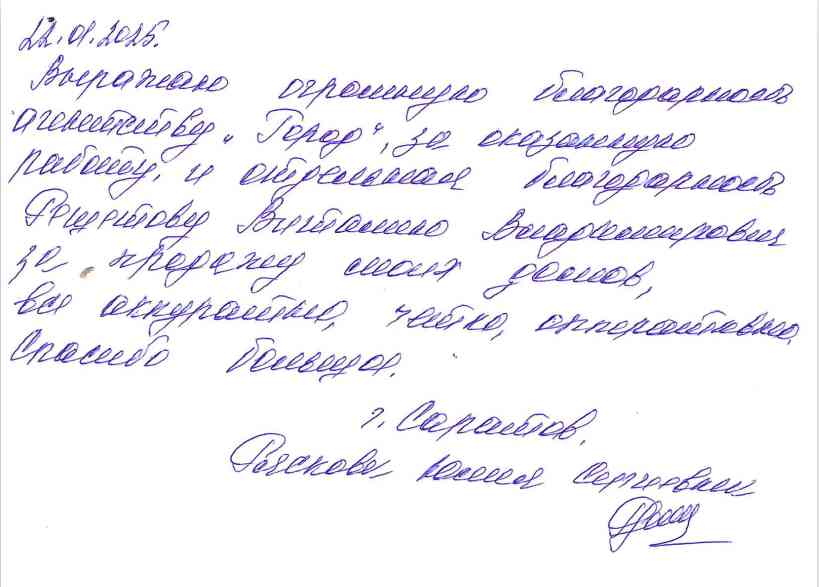 22.01.2025.
Выражаю огромную благодарность
агентству „Город", за оказанную
работу, и отдельная благодарность
Решетову Виталию Владимировичу
за продажу моих домов,
все аккуратно, четко, оперативно.
Спасибо большое.
г. Саратов.
Рыскова Юлия Сергеевна